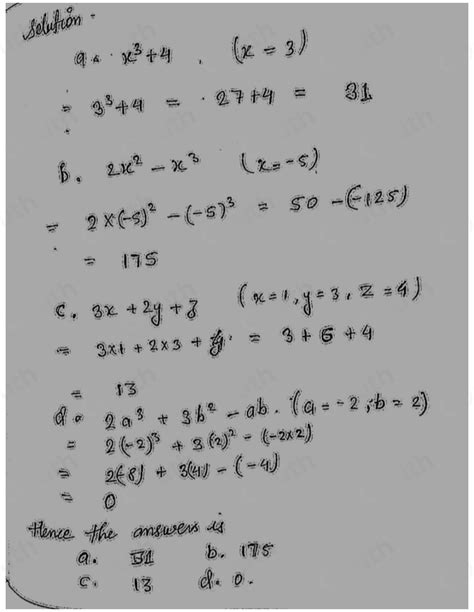 Solution -
a. x³+4 . (x = 3)
= 3³+4 = 27+4 = 31
b. 2x² - x³ (x=-5)
= 2×(-5)² - (-5)³ = 50 -(-125)
= 175
c. 3x + 2y + z (x=1, y=3, z=4)
= 3×1 + 2×3 + 4 = 3+6+4
= 13
d. 2a³ + 3b² - ab. (a=-2, b=2)
= 2(-2)³ + 3(2)² - (-2×2)
= 2(-8) + 3(4) - (-4)
= 0
Hence the answers is
a. 31 b. 175
c. 13 d. 0.